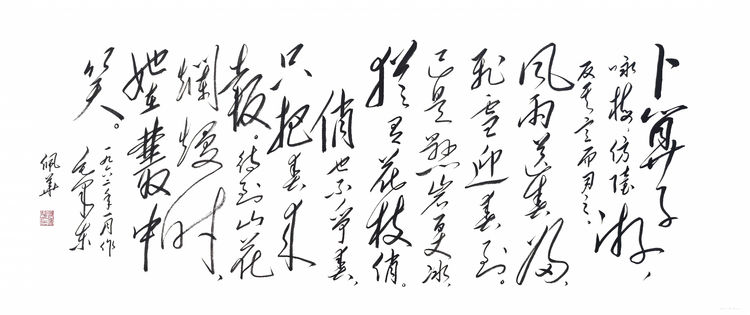 卜算子
咏梅，仿陸
游，
反其意而用之。
风雨送春归，
飛雪迎春到。
已是懸岩百丈冰，
猶有花枝俏。
俏也不爭春，
只把春来
報。待到山花
爛熳时，
她在叢中
笑。
一九六二年一月作
毛泽东
佩華